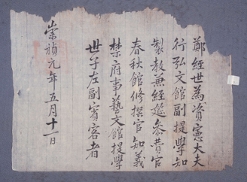 鄭經世為資憲大夫
行弘文館副提學知
製教兼經筵參贊官
春秋館修撰官知義
禁府事藝文館提學
世子左副賓客者
崇禎元年五月十一日